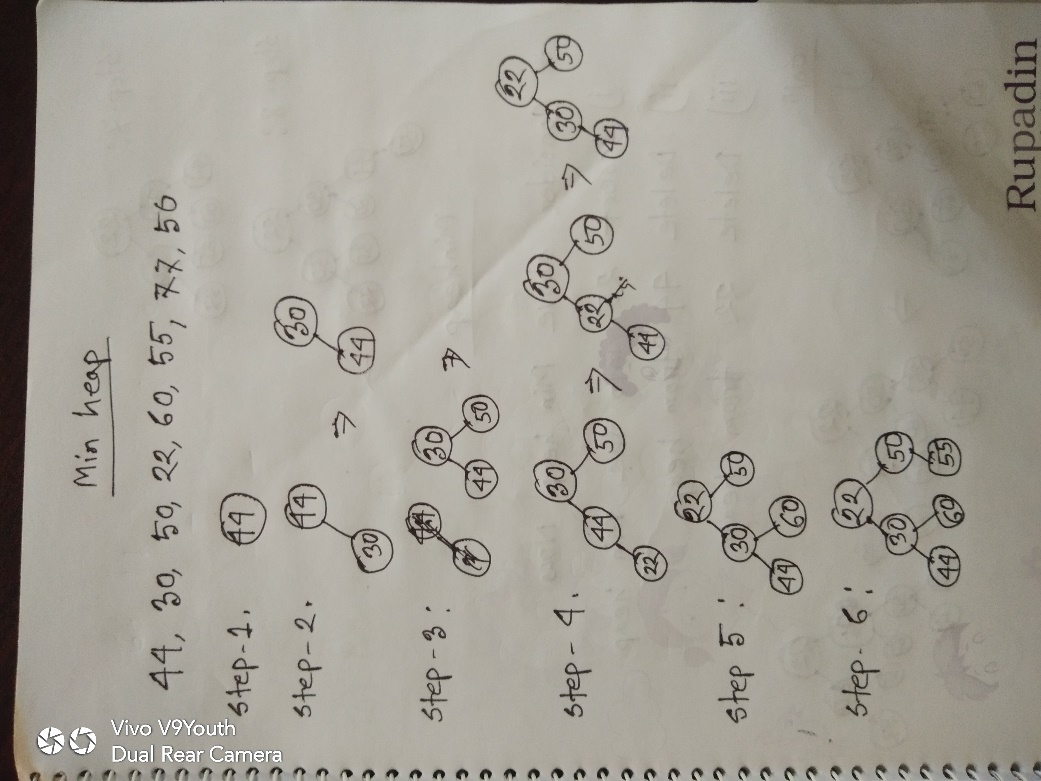 Min heap
44, 30, 50, 22, 60, 55, 77, 56
Step-1. 44
Step-2. 44 30 ⇒ 30 44
Step-3: 30 44 50 ⇒
Step-4. 30 44 50 22 ⇒ 30 22 50 44 ⇒ 22 30 50 44
Step 5: 22 30 50 44 60
Step-6: 22 30 50 44 60 55
Rupadin
Vivo V9Youth
Dual Rear Camera